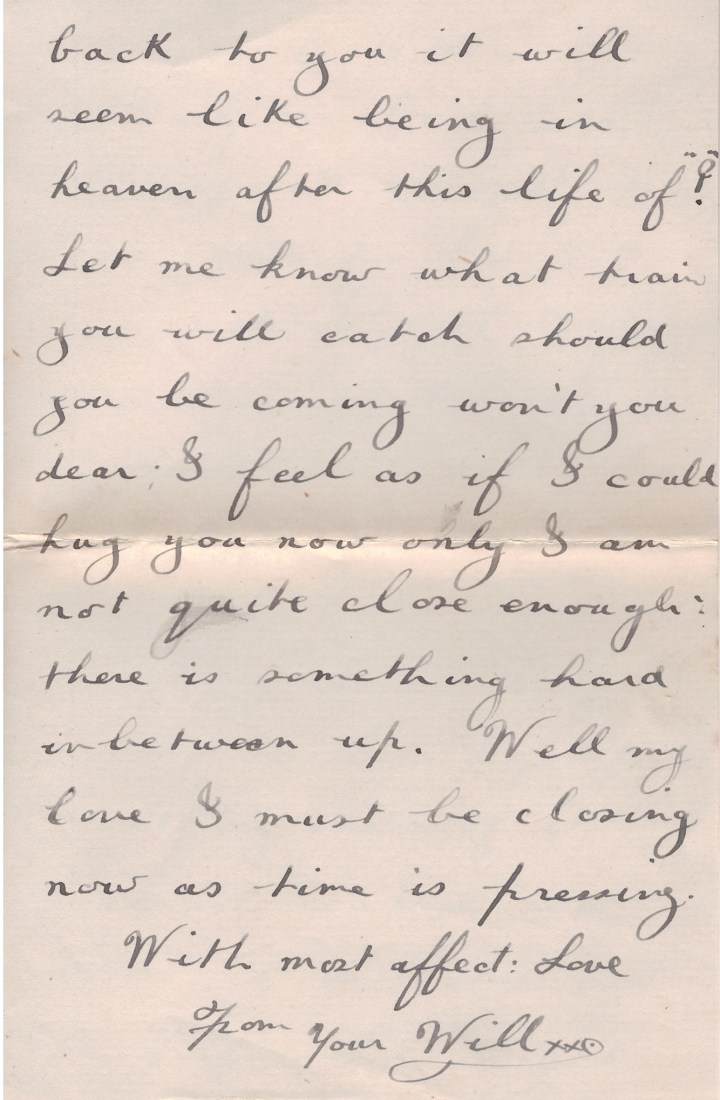 back to you it will
seem like being in
heaven after this life of "?"
Let me know what train
you will catch should
you be coming won't you
dear: I feel as if I could
hug you now only I am
not quite close enough:
there is something hard
in between up. Well my
love I must be closing
now as time is pressing.
With most affect: Love
From Your Will xxo